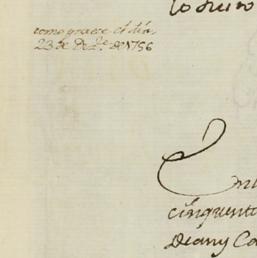 lo firmo
como parece el dia
23 de Dz.e de 1756
En
cinquenta
de any Ca